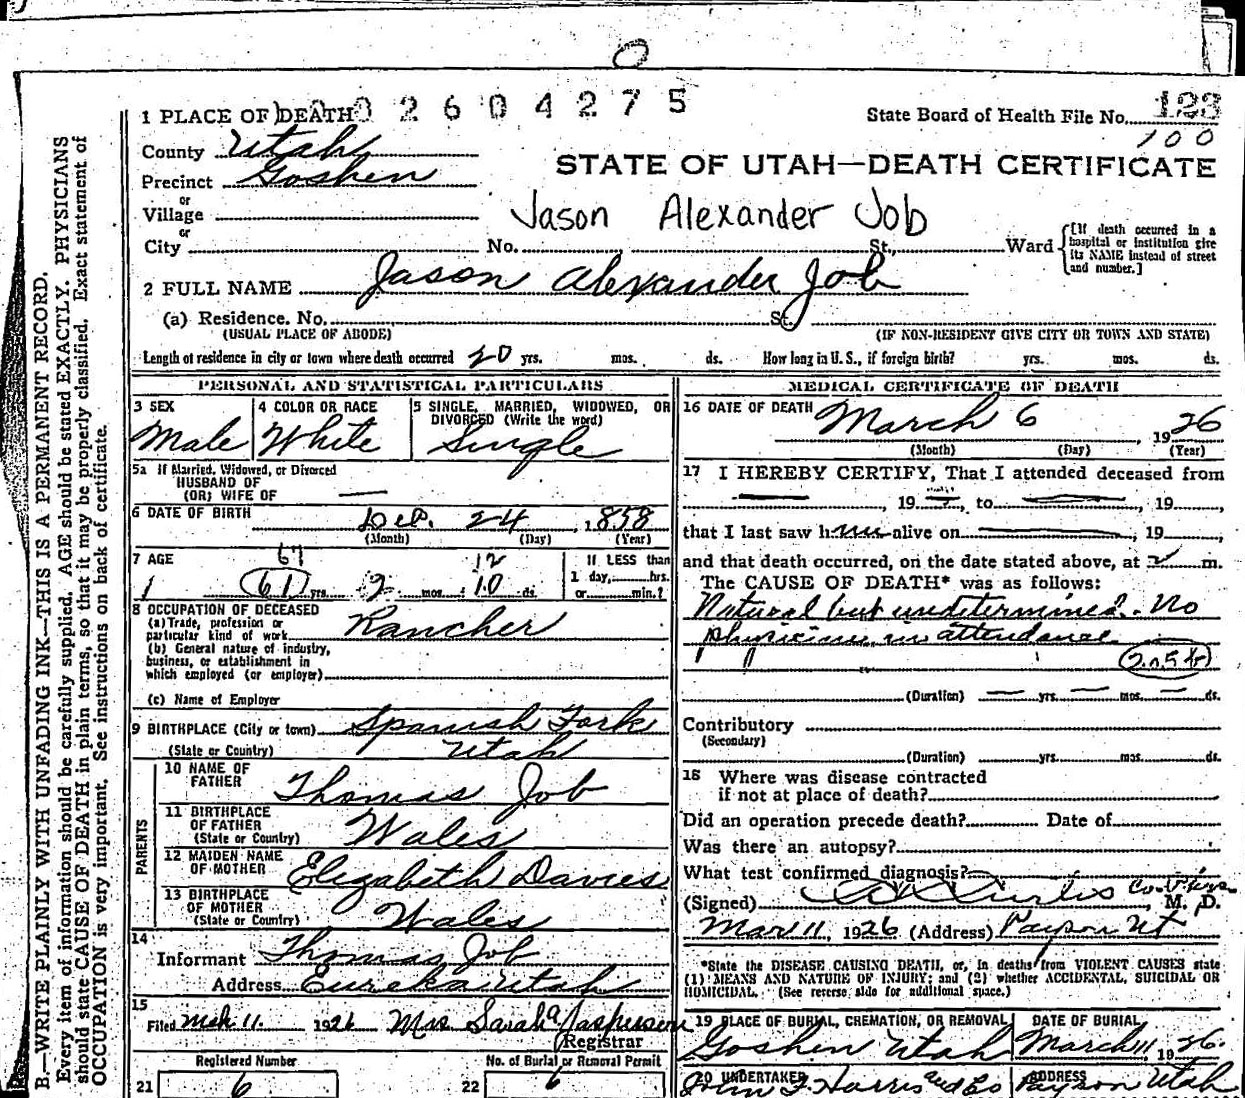 1 PLACE OF DEATH 0 2 6 0 4 2 7 5
State Board of Health File No. 123
100
County Utah
STATE OF UTAH—DEATH CERTIFICATE
Precinct Goshen
or
Village
Jason Alexander Job
or
City No. St., Ward
[If death occurred in a hospital or institution give its NAME instead of street and number.]
2 FULL NAME Jason Alexander Job
(a) Residence. No. St.
(USUAL PLACE OF ABODE) (IF NON-RESIDENT GIVE CITY OR TOWN AND STATE)
Length of residence in city or town where death occurred 20 yrs. mos. ds. How long in U. S., if foreign birth? yrs. mos. ds.
PERSONAL AND STATISTICAL PARTICULARS
3 SEX 4 COLOR OR RACE 5 SINGLE, MARRIED, WIDOWED, OR
DIVORCED (Write the word)
Male White Single
5a If Married, Widowed, or Divorced
HUSBAND OF
(OR) WIFE OF —
6 DATE OF BIRTH Dec. 24, 1858
(Month) (Day) (Year)
7 AGE 67 12 If LESS than
61 yrs. 2 mos. 10 ds. 1 day, hrs.
or min.?
8 OCCUPATION OF DECEASED
(a) Trade, profession or
particular kind of work Rancher
(b) General nature of industry,
business, or establishment in
which employed (or employer)
(c) Name of Employer
9 BIRTHPLACE (City or town) Spanish Fork
(State or Country) Utah
PARENTS
10 NAME OF
FATHER Thomas Job
11 BIRTHPLACE
OF FATHER
(State or Country) Wales
12 MAIDEN NAME
OF MOTHER Elizabeth Davies
13 BIRTHPLACE
OF MOTHER
(State or Country) Wales
14
Informant Thomas Job
Address Eureka Utah
15
Filed Mch 11. 1926 Mrs Sarah a Jasperson
Registrar
Registered Number No. of Burial or Removal Permit
21 6 22 6
MEDICAL CERTIFICATE OF DEATH
16 DATE OF DEATH March 6, 1926
(Month) (Day) (Year)
17 I HEREBY CERTIFY, That I attended deceased from
—, 19 —, to —, 19
that I last saw him alive on —, 19
and that death occurred, on the date stated above, at 2 m.
The CAUSE OF DEATH* was as follows:
Natural but undetermined. No
physician in attendance
205b
(Duration) — yrs. — mos. — ds.
Contributory
(Secondary)
(Duration) yrs. mos. ds.
18 Where was disease contracted
if not at place of death?
Did an operation precede death? Date of
Was there an autopsy?
What test confirmed diagnosis?
(Signed) Curtis Co. Phys, M. D.
Mar 11, 1926 (Address) Payson Ut
*State the DISEASE CAUSING DEATH, or, in deaths from VIOLENT CAUSES state
(1) MEANS AND NATURE OF INJURY; and (2) whether ACCIDENTAL, SUICIDAL OR
HOMICIDAL. (See reverse side for additional space.)
19 PLACE OF BURIAL, CREMATION, OR REMOVAL DATE OF BURIAL
Goshen Utah March 11, 1926.
20 UNDERTAKER ADDRESS
John F. Harris and Co Payson Utah
B.—WRITE PLAINLY WITH UNFADING INK—THIS IS A PERMANENT RECORD.
Every item of information should be carefully supplied. AGE should be stated EXACTLY. PHYSICIANS
should state CAUSE OF DEATH in plain terms, so that it may be properly classified. Exact statement of
OCCUPATION is very important. See instructions on back of certificate.